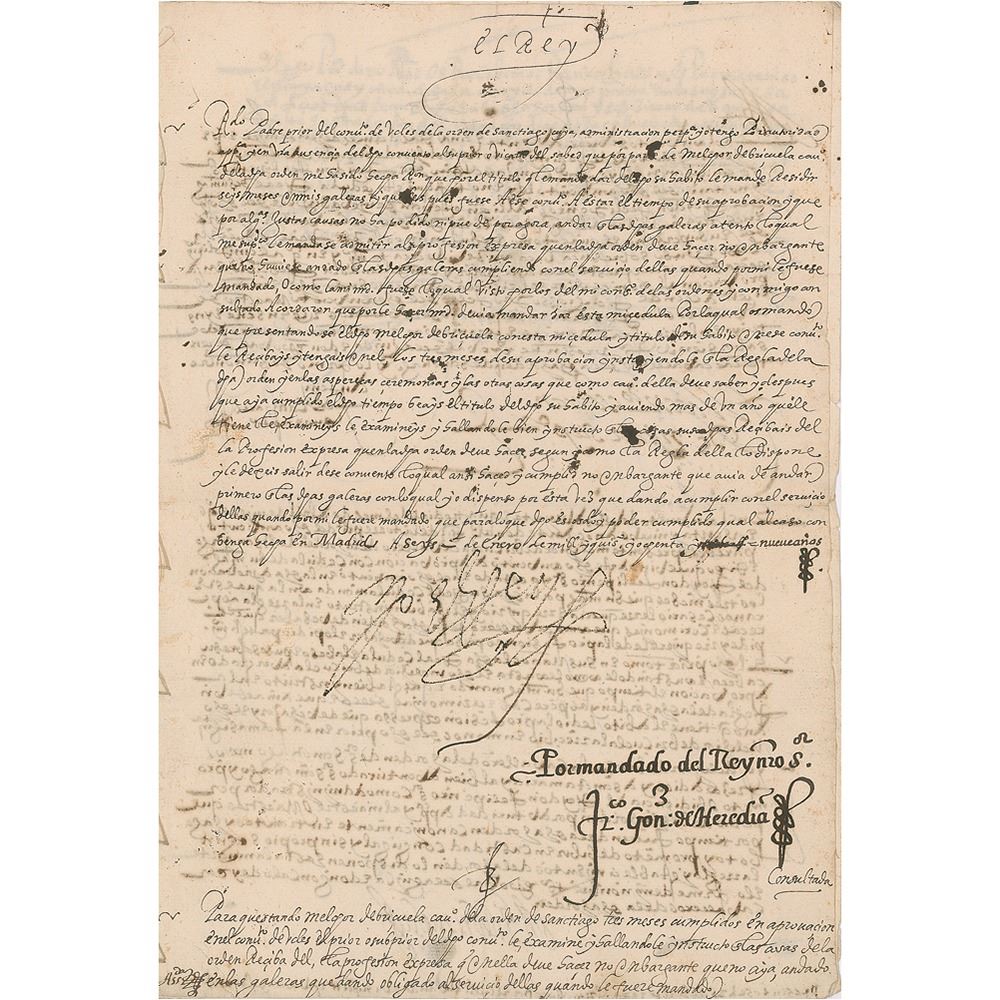 el Rey
R.do Padre prior del conu.o de Vcles de la orden de Sanctiago cuya, administracion perp.a yo tengo Por autoridad
app.ca y en vra ausencia del dho conuento al suprior o Vicario del sabed que por parte de Melchor de bricuela cau.o
de la dha orden me ha sido hecha Ron que por el titulo q le mande dar del dho su habito le mande Residir
seys meses en mis galeras y que despues fuese A ese conu.o A estar el tiempo de su aprobacion y que
por alg.as Justas causas no ha podido ni puede por agora, andar en las dhas galeras atento lo qual
me sup.co le mandase admitir a la profesion Expresa que en la dha orden deve hacer no enbargante
que no huuiese andado en las dhas galeras cumpliendo con el seruicio dellas quando por mi le fuese
mandado, O como la mi md. fuese lo qual Visto por los del mi cons.o de las ordenes y conmigo con
sultado Acordaron que por le hacer md. deuia mandar dar esta mi cedula Por la qual os mando
que presentandoso el dho melchor de bricuela con esta mi cedula y titulo de su habito en ese conu.o
le Recibays y tengais en el los tres meses de su aprobacion ynstruyendole en la Regla de la
dha orden y en las asperezas ceremonias y las otras cosas que como cau.o della deue saber y despues
que aya cumplido el dho tiempo beays El titulo del dho su habito y auiendo mas de Vn año que le
tiene le examineys y hallandole bien ynstructo en las cosas susodhas Recibais del
la Profesion Expresa que en la dha orden deve hacer segun y como la Regla della lo dispone
y le dexeis salir dese convento lo qual ansi haced y cumplir no enbargante que auia de andar
primero en las dhas galeras con lo qual yo dispenso por esta vez quedando a cumplir con el seruicio
dellas quando por mi le fuere mandado que para lo que dho es os doy poder cumplido qual al caso con
benga hecha en Madrid A seys de Enero de mill y quis. y ochenta y nueue años
Yo el Rey
Por mandado del Rey nro S.or
Fr.co Gon: de Heredia
Consultada
Para que estando melchor de bricuela cau.o de la orden de sanctiago tres meses cumplidos en aprouacion
en el conu.o de vcles el prior o subprior del dho conu.o le examine y hallandole ynstructo en las cosas de la
orden Reciba del, la profesion expresa q en ella deve hacer no enbargante que no aya andado
en las galeras quedando obligado al seruicio dellas quando le fuere mandado